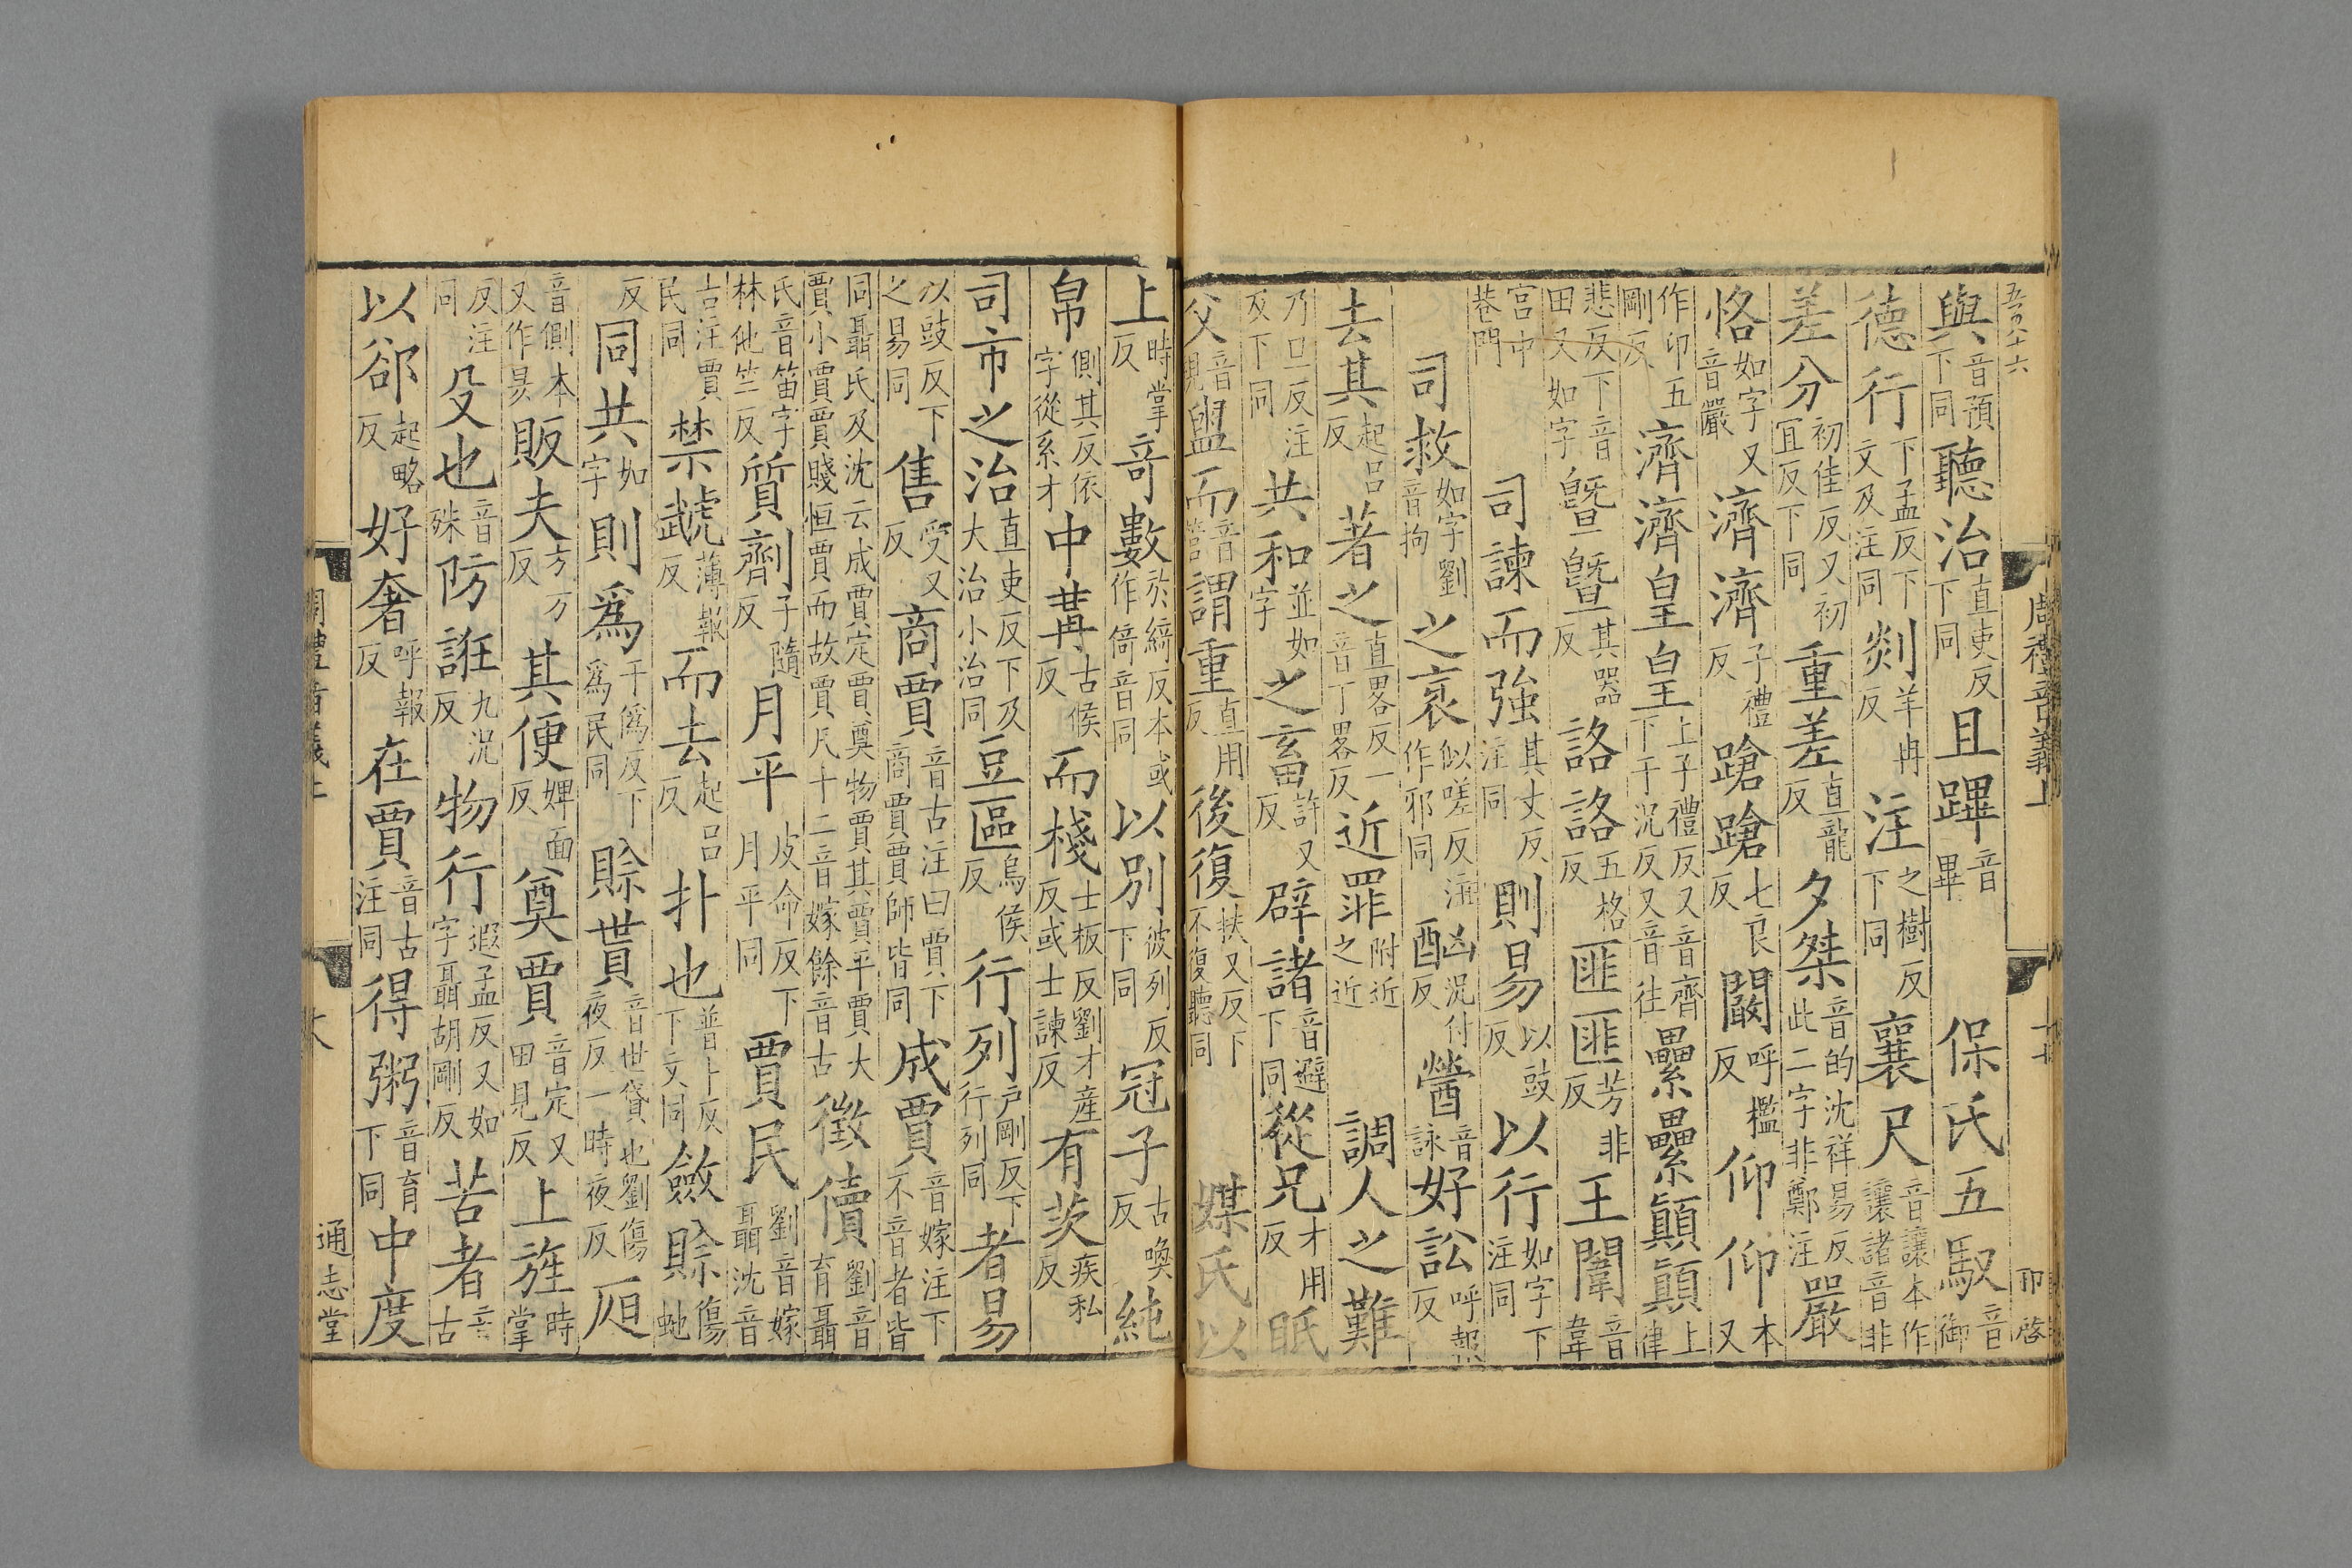 五百八十六
周禮音義上
十七
邢啓
與音預下同聽治直吏反下同且蹕音畢 保氏五馭音御
德行下孟反下文及注同剡羊冉反注之樹反下同襄尺音讓本作讓諸音非
差分初佳反又初宜反下同重差直龍反夕桀音的沈祥易反此二字非鄭注嚴
恪如字又音嚴濟濟子禮反蹌蹌七良反闞呼檻反仰仰本又
作卬五剛反濟濟皇皇上子禮反又音齊下于況反又音往纍纍顛顛上律
悲反下音田又如字曁曁其器反詻詻五格反匪匪芳非反王闈音韋
宮中巷門 司諫而強其丈反注同則易以豉反以行如字下注同
司救如字劉音拘之衺似嗟反注作邪同酗凶況付反醟音詠好訟呼報反
去其起呂反著之直畧反一音丁畧反近罪附近之近 調人之難
乃旦反注及下同共和並如字之畜許又反辟諸音避下同從兄才用反眂
父音視盥而音管謂重直用反後復扶又反下不復聽同 媒氏以
上時掌反奇數於綺反本或作倚音同以別彼列反下同冠子古喚反純
帛側其反依字從糸才中冓古候反而棧士板反劉才產反或士諫反有茨疾私反
司市之治直吏反下及大治小治同豆區烏侯反行列戶剛反下行列同者易
以豉反下之易同售受又反商賈音古注曰賈下商賈賈師皆同成賈音嫁注下不音者皆
同聶氏及沈云成賈定賈奠物賈其賈平賈大賈小賈賈賤恒賈而故賈凡十二音嫁餘音古徵儥劉音育聶
氏音笛字林他竺反質劑子隨反月平皮命反下月平同賈民劉音嫁聶沈音
古注賈民同禁虣薄報反而去起呂反扑也普卜反下文同斂賒傷蛇
反同共如字則為于僞反下為民同賒貰音世貸也劉傷夜反一時夜反昃
音側本又作昃販夫方万反其便婢面反奠賈音定又田見反上旌時掌
反注同殳也音殊防誑九況反物行遐孟反又如字聶胡剛反苦者音古
以郤起略反好奢呼報反在賈音古注同得粥音育下同中度
周禮音義上
六
通志堂